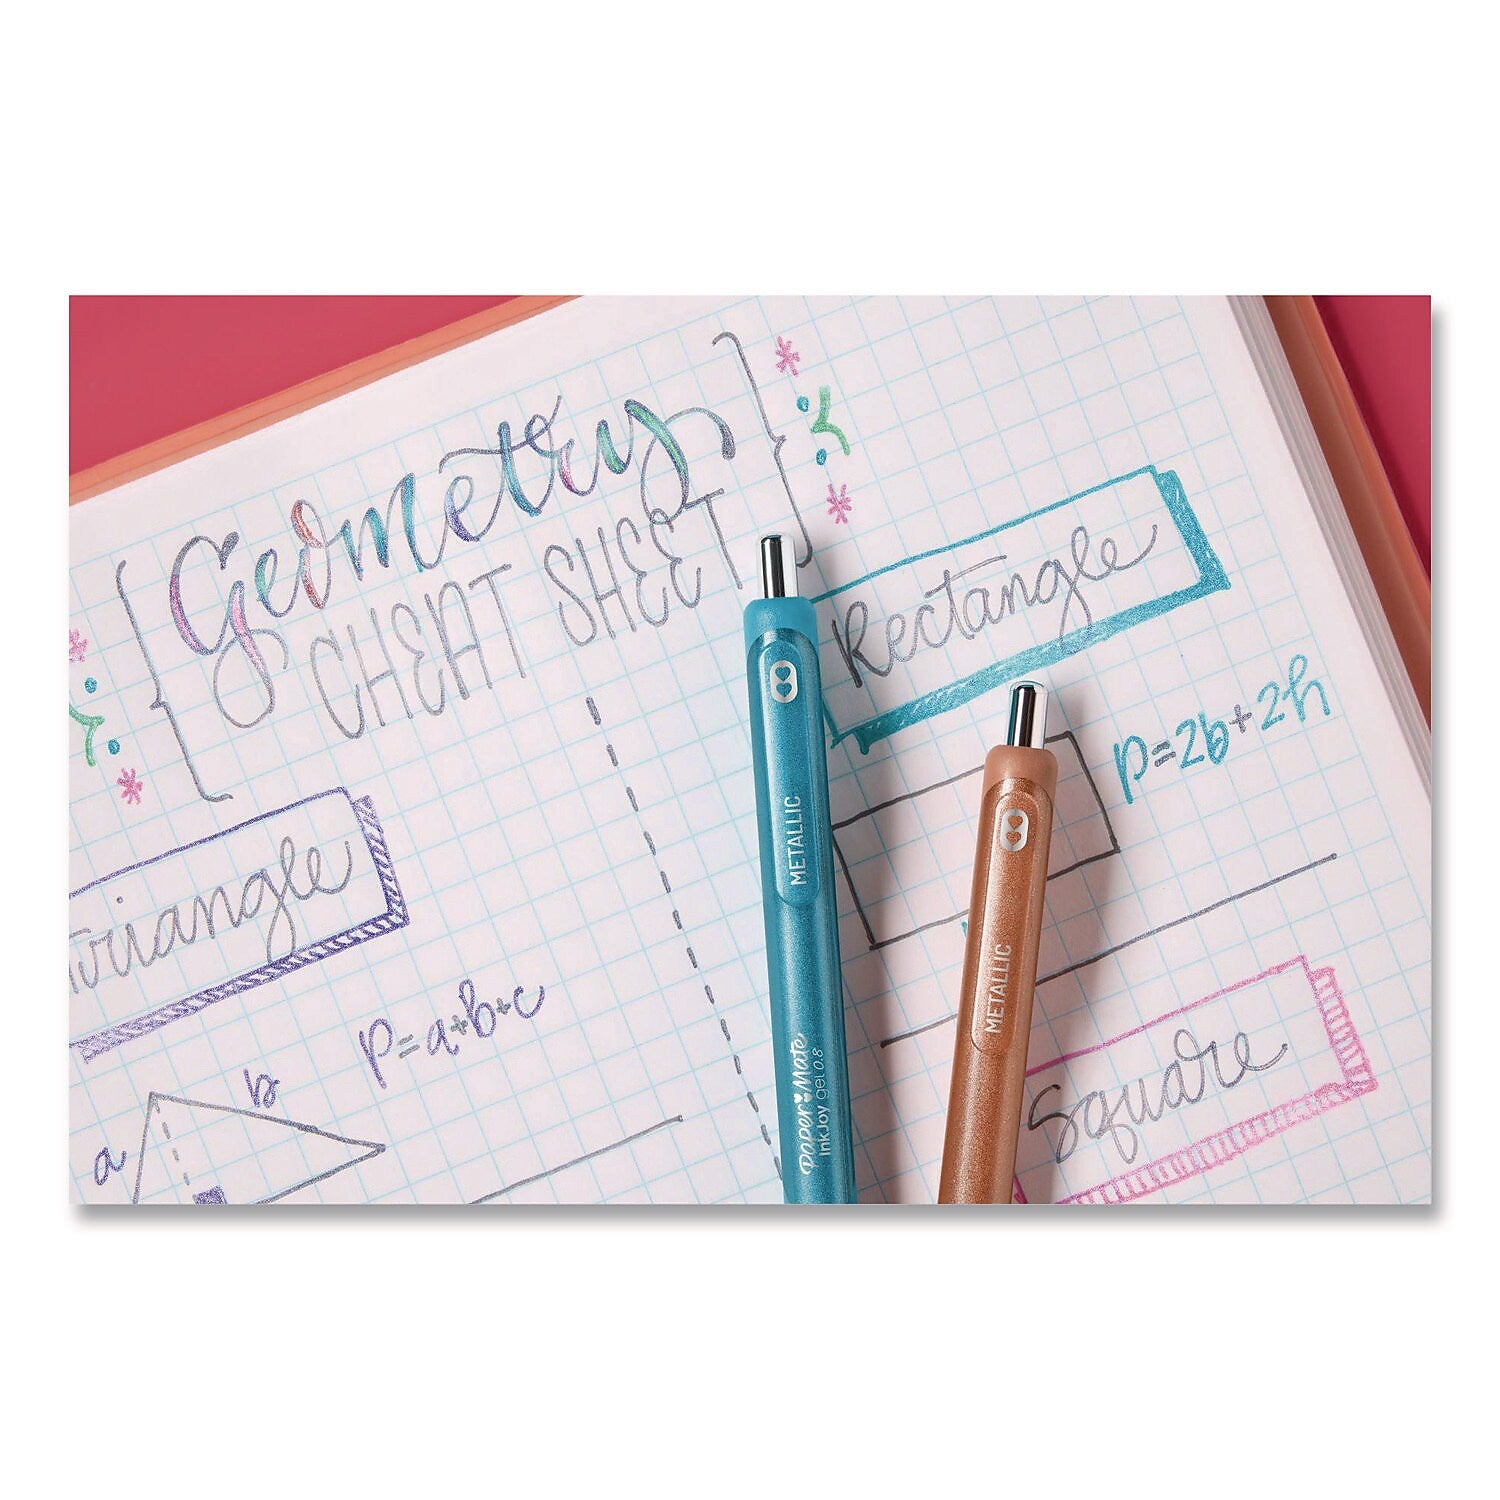 Geometry
CHEAT SHEET
Rectangle
P=2b+2h
Triangle
P=a+b+c
b
a
Square
METALLIC
Paper Mate
InkJoy gel 0.8
METALLIC